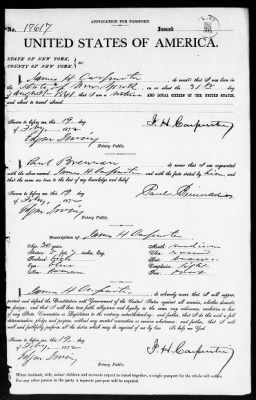 APPLICATION FOR PASSPORT.
No. 17617 Issued
UNITED STATES OF AMERICA.
STATE OF NEW YORK,
COUNTY OF NEW YORK,
I, James H Carpenter do swear that I was born in the
State of New York on or about the 31st day
of August that I am a Native AND LOYAL CITIZEN OF THE UNITED STATES,
and about to travel abroad.
Sworn to before me this 19
of Feby 1872
Edgar Irving
Notary Public.
J. H. Carpenter
I, Paul Brennan do swear that I am acquainted
with the above named James H Carpenter and with the facts stated by him, and
that the same are true to the best of my knowledge and belief.
Sworn to before me this 19
of Feby 1872
Edgar Irving
Notary Public.
Paul
Description of James H Carpenter
Age,
Stature,
Forehead, high
Eyes, blue
Nose, Roman
Mouth, medium
Chin,
Hair, brown
Complexion, light
Face,
I, James H Carpenter do solemnly swear that I will support,
protect and defend the Constitution and Government of the United States against all enemies, whether domestic
or foreign, and that I will bear true faith, allegiance and loyalty to the same, any ordinance, resolution or law
of any State, Convention or Legislature to the contrary notwithstanding; and further, that I do this with a full
determination, pledge and purpose, without any mental reservation or evasion whatsoever; and further, that I will
well and faithfully perform all the duties which may be required of me by law. So help me God.
Sworn to before me this 19
of Feby 1872
Edgar Irving
Notary Public.
J. H. Carpenter
When husband, wife, minor children and servants expect to travel together, a single passport for the whole will suffice.
For any other person in the party a separate passport will be required.